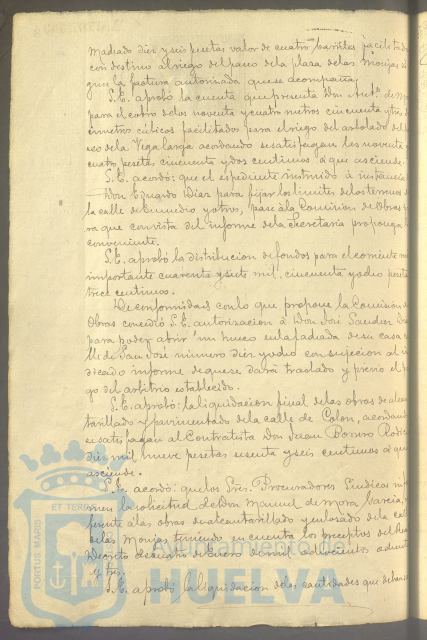 Madrado diez y seis pesetas valor de cuatro barriles facilitados
con destino al riego del paseo de la plaza de las Monjas se
gún la factura autorizada que se acompaña.
S.E. aprobó la cuenta que presenta Don Antº de
para el cobro de los noventa y cuatro metros cincuenta y tres
cúbicos facilitados para el riego del arbolado del
seo de la Vega larga acordando se satisfagan los noventa y
cuatro pesetas, cincuenta y dos centimos á que asciende.
S.E. acordó: que el espediente instruido á instancia
Don Eduardo Diaz para fijar los limites de los terrenos de
la calle de Enmedio y otros, pase á la Comision de Obras pa
ra que con vista del informe de la Secretaria proponga lo
conveniente.
S.E. aprobó la distribucion de fondos para el corriente
importante cuarenta y siete mil, cincuenta y ocho pesetas
trece centimos.
De conformidad con lo que propone la Comisión de
Obras concedió S.E. autorización á Don José Sanchez
para poder abrir un hueco en la fachada de su casa
lle de San José número diez y ocho con sujecion al in
dicado informe de que se dará traslado y previo el pa
go del arbitrio establecido.
S.E. aprobó: la liquidacion final de las obras de alcan
tarillado y pavimentado de la calle de Colon, acordando
se satisfagan al Contratista Don Juan Borrero
diez mil, nueve pesetas sesenta y seis centimos á que
asciende.
S.E. acordó: que los Sres. Procuradores Sindicos in
men la solicitud de Don Manuel de mora Garcia,
ferente á las obras de alcantarillado y enlosado de la calle
de las Monjas teniendo en cuenta los preceptos del Real
Decreto de cuatro de Enero de mil ochocientos ochenta
y tres.
S.E. aprobó la liquidacion de las cantidades que deben
PORTUS MARIS
ET TERRAE
Ayuntamiento de
HUELVA